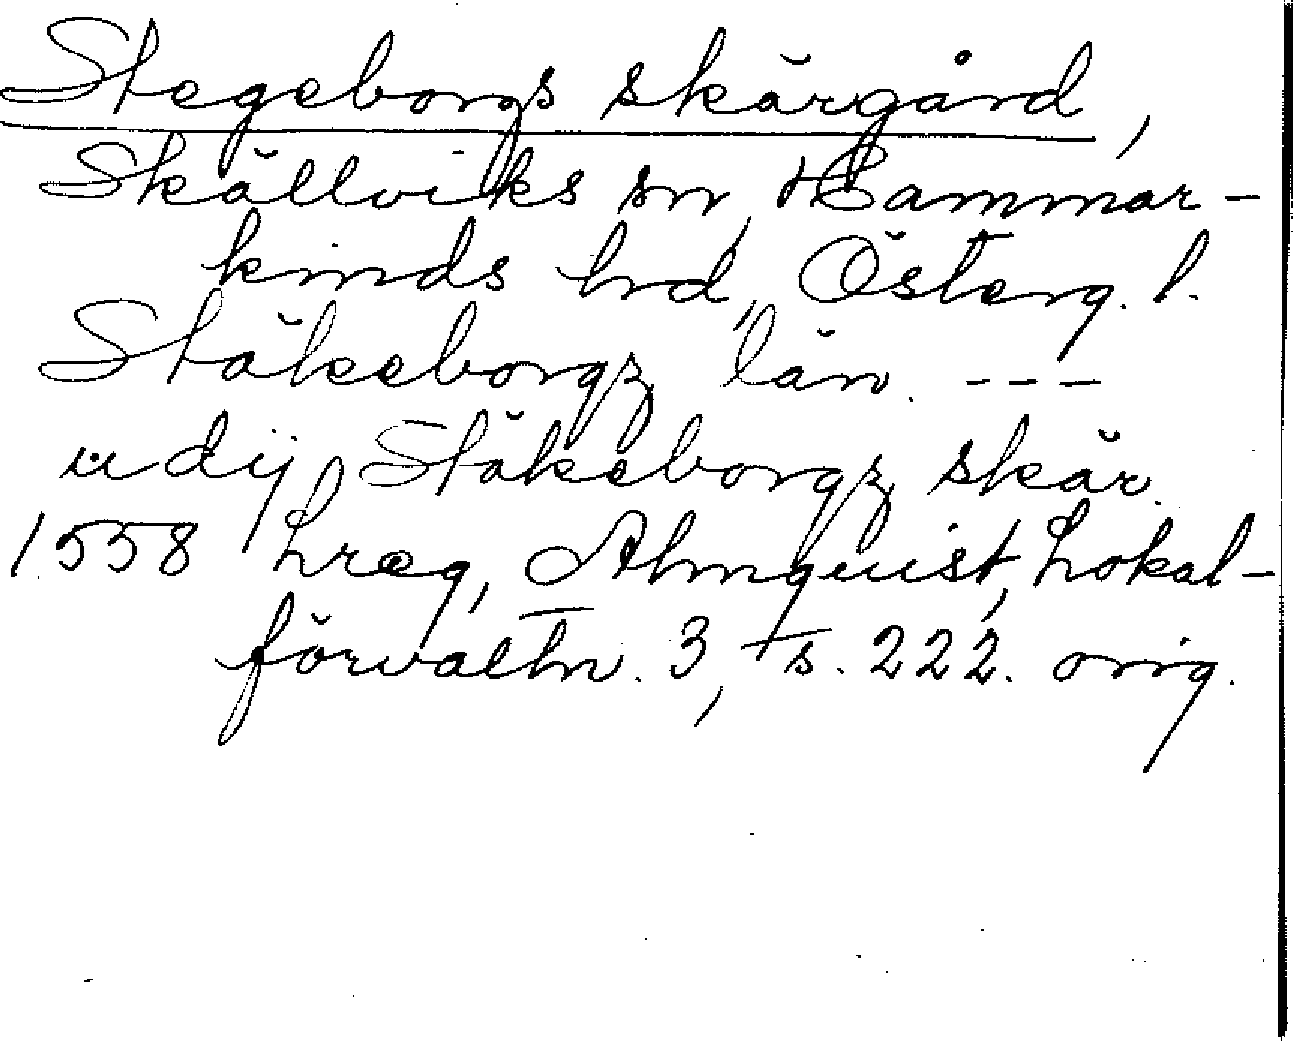 Stegeborgs skärgård,
Skällviks sn, Hammar-
kinds hd, Österg. l.
Stäkeborgz län. ---
udij Stäkeborgz skär.
1558 Lreg, Almquist, Lokal-
förvaltn. 3, s. 222. orig.